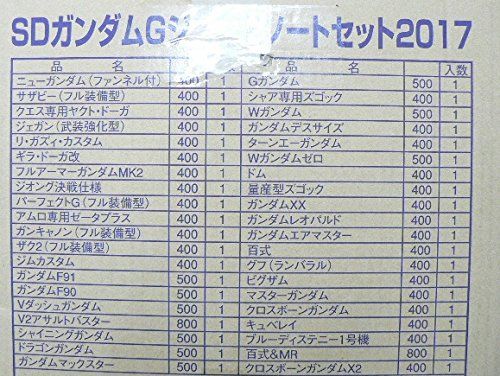 SDガンダムGジ ソートセット2017
品 名 数 品 名 入数
ニューガンダム(ファンネル付) 400 1 Gガンダム 500 1
サザビー(フル装備型) 400 1 シャア専用ズゴック 400 1
クエス専用ヤクト・ドーガ 400 1 Wガンダム 500 1
ジェガン(武装強化型) 400 1 ガンダムデスサイズ 400 1
リ・ガズィ・カスタム 400 1 ターンエーガンダム 400 1
ギラ・ドーガ改 400 1 Wガンダムゼロ 500 1
フルアーマーガンダムMK2 400 1 ドム 400 1
ジオング決戦仕様 400 1 量産型ズゴック 400 1
パーフェクトG(フル装備型) 400 1 ガンダムXX 400 1
アムロ専用ゼータプラス 400 1 ガンダムレオパルド 400 1
ガンキャノン(フル装備型) 400 1 ガンダムエアマスター 400 1
ザク2(フル装備型) 400 1 百式 400 1
ジムカスタム 400 1 グフ(ランバラル) 400 1
ガンダムF91 500 1 ビグザム 400 1
ガンダムF90 500 1 マスターガンダム 400 1
Vダッシュガンダム 500 1 クロスボーンガンダム 400 1
V2アサルトバスター 800 1 キュベレイ 400 1
シャイニングガンダム 500 1 ブルーディステニー1号機 400 1
ドラゴンガンダム 500 1 百式&MR 800 1
ガンダムマックスター 500 1 クロスボーンガンダムX2 400 1